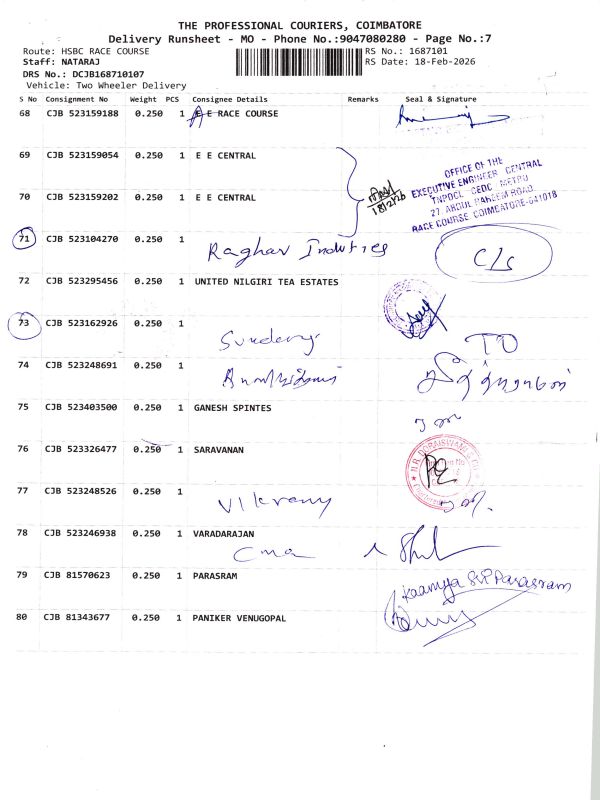 THE PROFESSIONAL COURIERS, COIMBATORE
Delivery Runsheet - MO - Phone No.:9047080280 - Page No.:7
Route: HSBC RACE COURSE RS No.: 1687101
Staff: NATARAJ RS Date: 18-Feb-2026
DRS No.: DCJB168710107
Vehicle: Two Wheeler Delivery
S No Consignment No Weight PCS Consignee Details Remarks Seal & Signature
68 CJB 523159188 0.250 1 E E RACE COURSE
69 CJB 523159054 0.250 1 E E CENTRAL
OFFICE OF THE
EXECUTIVE ENGINEER CENTRAL
TNPDCL CEDC METRO
27, ABDUL RAHEEM ROAD,
RACE COURSE, COIMBATORE-641018
70 CJB 523159202 0.250 1 E E CENTRAL
18/2/26
71 CJB 523104270 0.250 1
Raghav Industries C/s
72 CJB 523295456 0.250 1 UNITED NILGIRI TEA ESTATES
73 CJB 523162926 0.250 1
TO
74 CJB 523248691 0.250 1
75 CJB 523403500 0.250 1 GANESH SPINTES
76 CJB 523326477 0.250 1 SARAVANAN
77 CJB 523248526 0.250 1
Vikram
78 CJB 523246938 0.250 1 VARADARAJAN
Cma
79 CJB 81570623 0.250 1 PARASRAM
Kaamya S.P Parasram
80 CJB 81343677 0.250 1 PANIKER VENUGOPAL